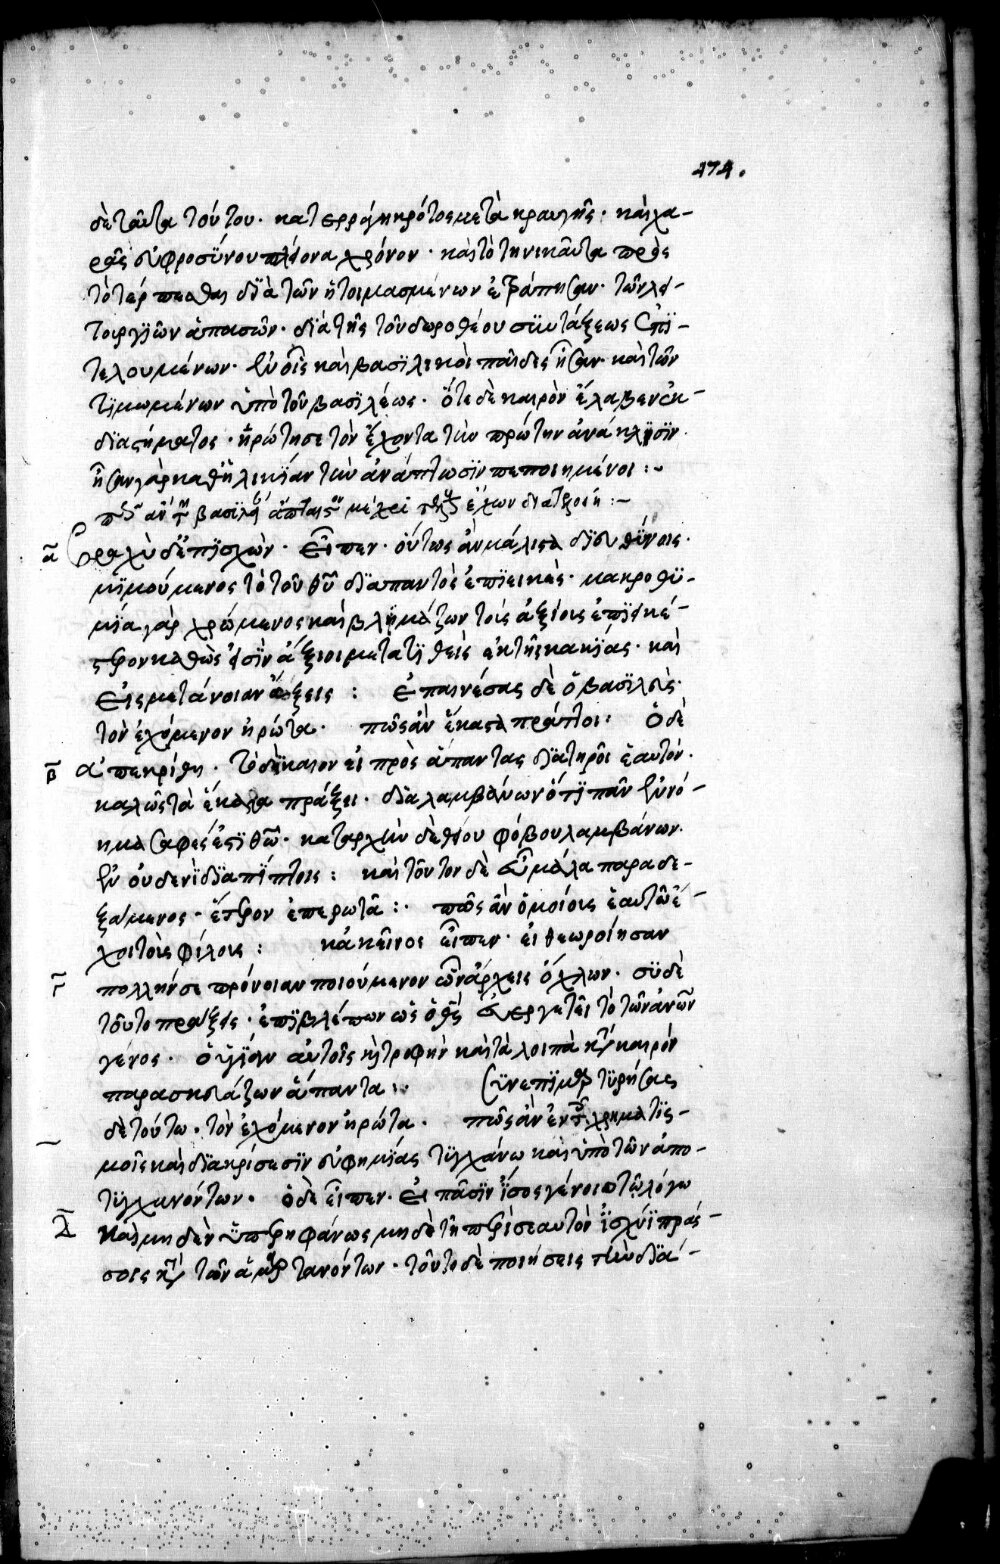 474.
δὲ ταῦτα τούτου· κατερράγη κρότος μετὰ κραυγῆς· καὶ χα-
ρᾶς εὐφροσύνου πλείονα χρόνον· καὶ τὸ τηνικαῦτα πρὸς
τὸ τέρπεσθαι διὰ τῶν ἡτοιμασμένων ἐτράπησαν· τῶν λει-
τουργιῶν ἁπασῶν· διὰ τῆς τοῦ δωροθέου συντάξεως ἐπι-
τελουμένων· ἐν οἷς καὶ βασιλικοὶ παῖδες ἦσαν· καὶ τῶν
τιμωμένων ὑπὸ τοῦ βασιλέως· ὅτε δὲ καιρὸν ἔλαβεν ἐκ
διαστήματος· ἠρώτησε τὸν ἔχοντα τὴν πρώτην ἀνάκλησιν·
ἦσαν γὰρ καθ' ἡλικίαν τὴν ἀνάπτωσιν πεποιημένοι :~
πῶς ἂν τὴν βασιλείαν ἄπταιστον μέχρι τέλους ἔχων διατελοίη :~
α Βραχὺ δ' ἐπισχὼν· εἶπεν· οὕτως ἂν μάλιστα διευθύνοις·
μιμούμενος τὸ τοῦ θῦ διαπαντὸς ἐπιεικές· μακροθυ-
μία γὰρ χρώμενος καὶ βλημάζων τοὺς ἀξίους ἐπιεικέ-
στερον καθὼς εἰσὶν ἄξιοι μετατιθεὶς ἐκ τῆς κακίας· καὶ
εἰς μετάνοιαν ἄξεις : Ἐπαινέσας δὲ ὁ βασιλεὺς·
τὸν ἐχόμενον ἠρώτα· πῶς ἂν ἕκαστα πράττοι· Ὁ δὲ
β ἀπεκρίθη· τὸ δίκαιον εἰ πρὸς ἅπαντας διατηροῖ ἑαυτόν·
καλῶς τὰ ἕκαστα πράξει· διαλαμβάνων ὅτι πᾶν ἐννό-
ημα σαφές ἐστι θῶ· καταρχὴν δὲ θείου φόβου λαμβάνων·
ἐν οὐδενὶ διαπίπτοις : καὶ τοῦτον δὲ εὖ μάλα παραδε-
ξάμενος· ἕτερον ἐπερωτᾶ :· πῶς ἂν ὁμοίους ἑαυτῶ ἔ-
χοι τοὺς φίλους : κἀκεῖνος εἶπεν· εἰ θεωροίησαν
γ πολλήν σε πρόνοιαν ποιούμενον ὧν ἄρχεις ὄχλων· σὺ δὲ
τοῦτο πράξεις· ἐπιβλέπων ὡς ὁ θς εὐεργετεῖ τὸ τῶν ἀνων
γένος· ὑγίειαν αὐτοῖς καὶ τροφὴν καὶ τὰ λοιπὰ κατὰ καιρὸν
παρασκευάζων ἅπαντα :· Συνεπιμαρτυρήσας
δὲ τούτω· τὸν ἐχόμενον ἠρώτα· πῶς ἂν ἐν τοῖς χρηματισ-
μοῖς καὶ διακρίσεσιν εὐφημίας τυγχάνω καὶ ὑπὸ τῶν ἀπο-
τυγχανόντων· ὁ δὲ εἶπεν· εἰ πᾶσιν ἴσος γένοιο τῶ λόγω
δ καὶ μηδὲν ὑπερηφάνως μηδὲ τῆ περὶ σεαυτὸν ἰσχύϊ πράσ-
σοις κατὰ τῶν ἁμαρτανόντων· τοῦτο δὲ ποιήσεις τὴν διά-